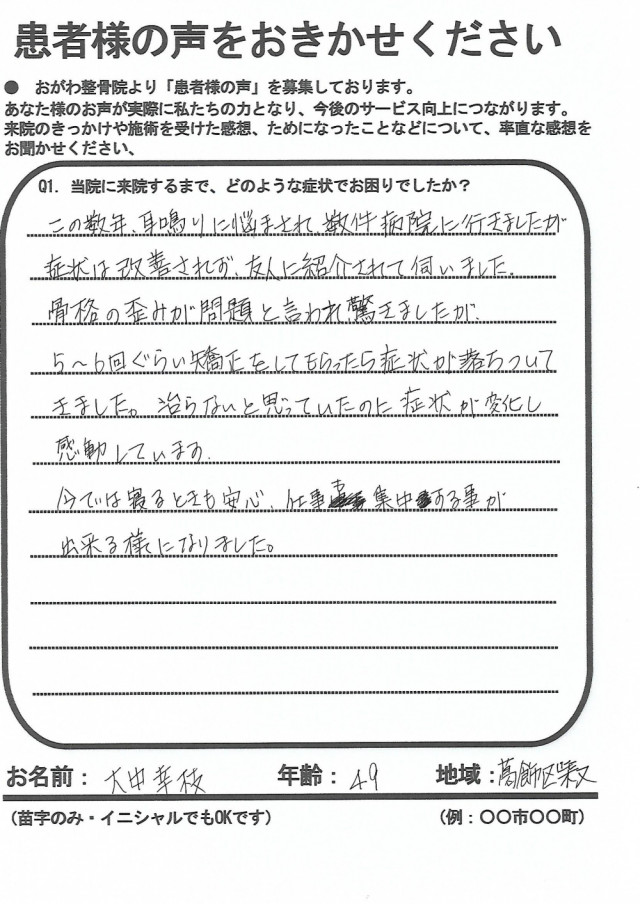 患者様の声をおきかせください
● おがわ整骨院より「患者様の声」を募集しております。
あなた様のお声が実際に私たちの力となり、今後のサービス向上につながります。
来院のきっかけや施術を受けた感想、ためになったことなどについて、率直な感想を
お聞かせください、
Q1. 当院に来院するまで、どのような症状でお困りでしたか？
この数年、耳鳴りに悩まされ、数件病院に行きましたが
症状は改善されず、友人に紹介されて伺いました。
骨格の歪みが問題と言われ、驚きましたが、
5～6回ぐらい矯正をしてもらったら症状が落ちついて
きました。治らないと思っていたのに症状が変化し
感動しています。
今では寝るときも安心、仕事 集中する事が
出来る様になりました。
お名前： 大中幸枝 年齢： 49 地域：葛飾区
（苗字のみ・イニシャルでもOKです） （例：〇〇市〇〇町）